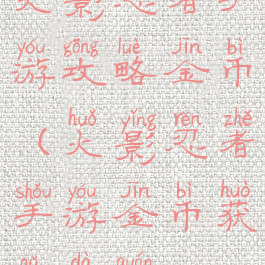 yóu gōng luè jīn bì
游攻略金币
huǒ yǐng rěn zhě
（火影忍者
shǒu yóu jīn bì huò
手游金币获